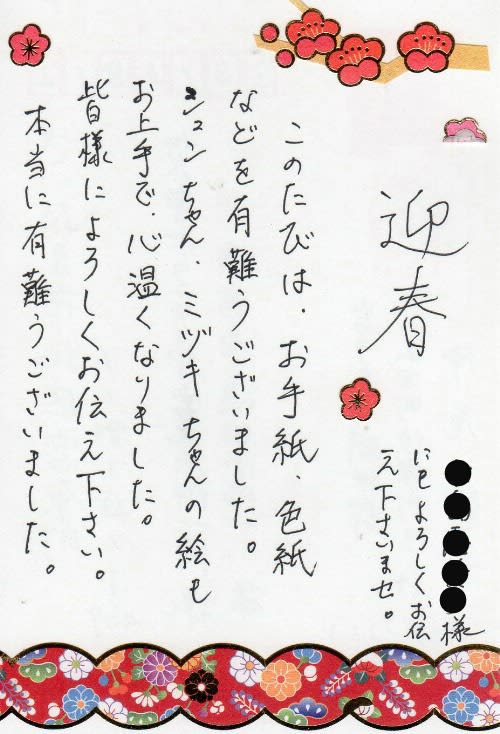 迎春
このたびは、お手紙、色紙
などを有難うございました。
シュンちゃん、ミヅキちゃんの絵も
お上手で、心温くなりました。
皆様によろしくお伝え下さい。
本当に有難うございました。
様
にもよろしくお伝
え下さいませ。